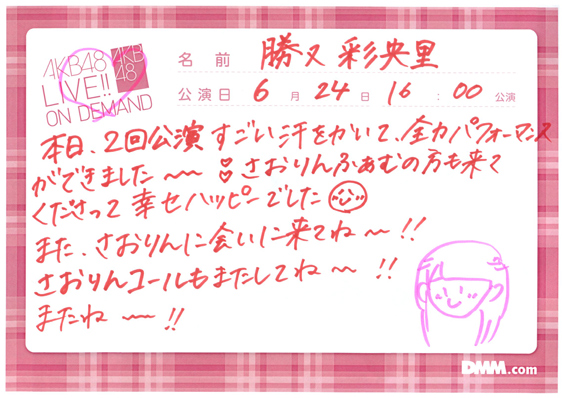 AKB48
LIVE!!
ON DEMAND
AKB
48
名前 勝又 彩央里
公演日 6月24日 16:00 公演
本日、2回公演すごい汗をかいて、全力パフォーマンス
ができました〜〜 さおりんふぁむの方も来て
くださって幸せハッピーでした
また、さおりんに会いに来てね〜!!
さおりんコールもまたしてね〜!!
またね〜!!
DMM.com